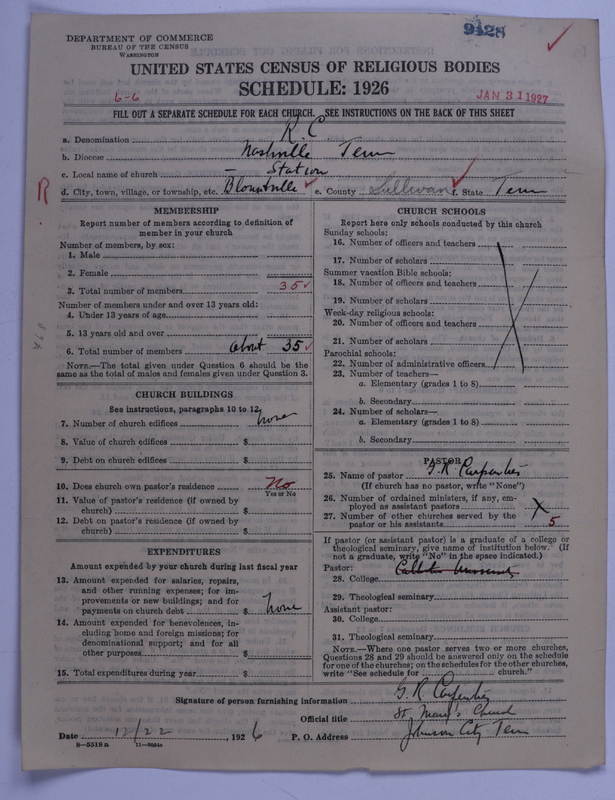 DEPARTMENT OF COMMERCE
BUREAU OF THE CENSUS
WASHINGTON
9428
UNITED STATES CENSUS OF RELIGIOUS BODIES
SCHEDULE: 1926
6-6
JAN 31 1927
FILL OUT A SEPARATE SCHEDULE FOR EACH CHURCH. SEE INSTRUCTIONS ON THE BACK OF THIS SHEET
a. Denomination R. C
b. Diocese Nashville Tenn
c. Local name of church — Station
R d. City, town, village, or township, etc. Blountville e. County Sullivan f. State Tenn
MEMBERSHIP
Report number of members according to definition of
member in your church
Number of members, by sex:
1. Male
2. Female
3. Total number of members 35
Number of members under and over 13 years old:
4. Under 13 years of age
5. 13 years old and over
6. Total number of members about 35
NOTE.—The total given under Question 6 should be
same as the total of males and females given under Question 3.
CHURCH BUILDINGS
See instructions, paragraphs 10 to 12
7. Number of church edifices none
8. Value of church edifices $
9. Debt on church edifices $
10. Does church own pastor's residence No
Yes or No
11. Value of pastor's residence (if owned by
church) $
12. Debt on pastor's residence (if owned by
church) $
EXPENDITURES
Amount expended by your church during last fiscal year
13. Amount expended for salaries, repairs,
and other running expenses; for im-
provements or new buildings; and for
payments on church debt $ none
14. Amount expended for benevolences, in-
cluding home and foreign missions; for
denominational support; and for all
other purposes $
15. Total expenditures during year $
CHURCH SCHOOLS
Report here only schools conducted by this church
Sunday schools:
16. Number of officers and teachers
17. Number of scholars
Summer vacation Bible schools:
18. Number of officers and teachers
19. Number of scholars
Week-day religious schools:
20. Number of officers and teachers
21. Number of scholars
Parochial schools:
22. Number of administrative officers
23. Number of teachers—
a. Elementary (grades 1 to 8)
b. Secondary
24. Number of scholars—
a. Elementary (grades 1 to 8)
b. Secondary
PASTOR
25. Name of pastor G. R Carpenter
(If church has no pastor, write "None")
26. Number of ordained ministers, if any, em-
ployed as assistant pastors
27. Number of other churches served by the
pastor or his assistants 5
If pastor (or assistant pastor) is a graduate of a college or
theological seminary, give name of institution below. (If
not a graduate, write "No" in the space indicated.)
Pastor:
28. College
29. Theological seminary
Assistant pastor:
30. College
31. Theological seminary
NOTE.—Where one pastor serves two or more churches,
Questions 28 and 29 should be answered only on the schedule
for one of the churches; on the schedules for the other churches,
write "See schedule for church."
Signature of person furnishing information G. R Carpenter
Official title St Mary's Church
Date 12/22, 1926 P. O. Address Johnson City Tenn
8—5518 a